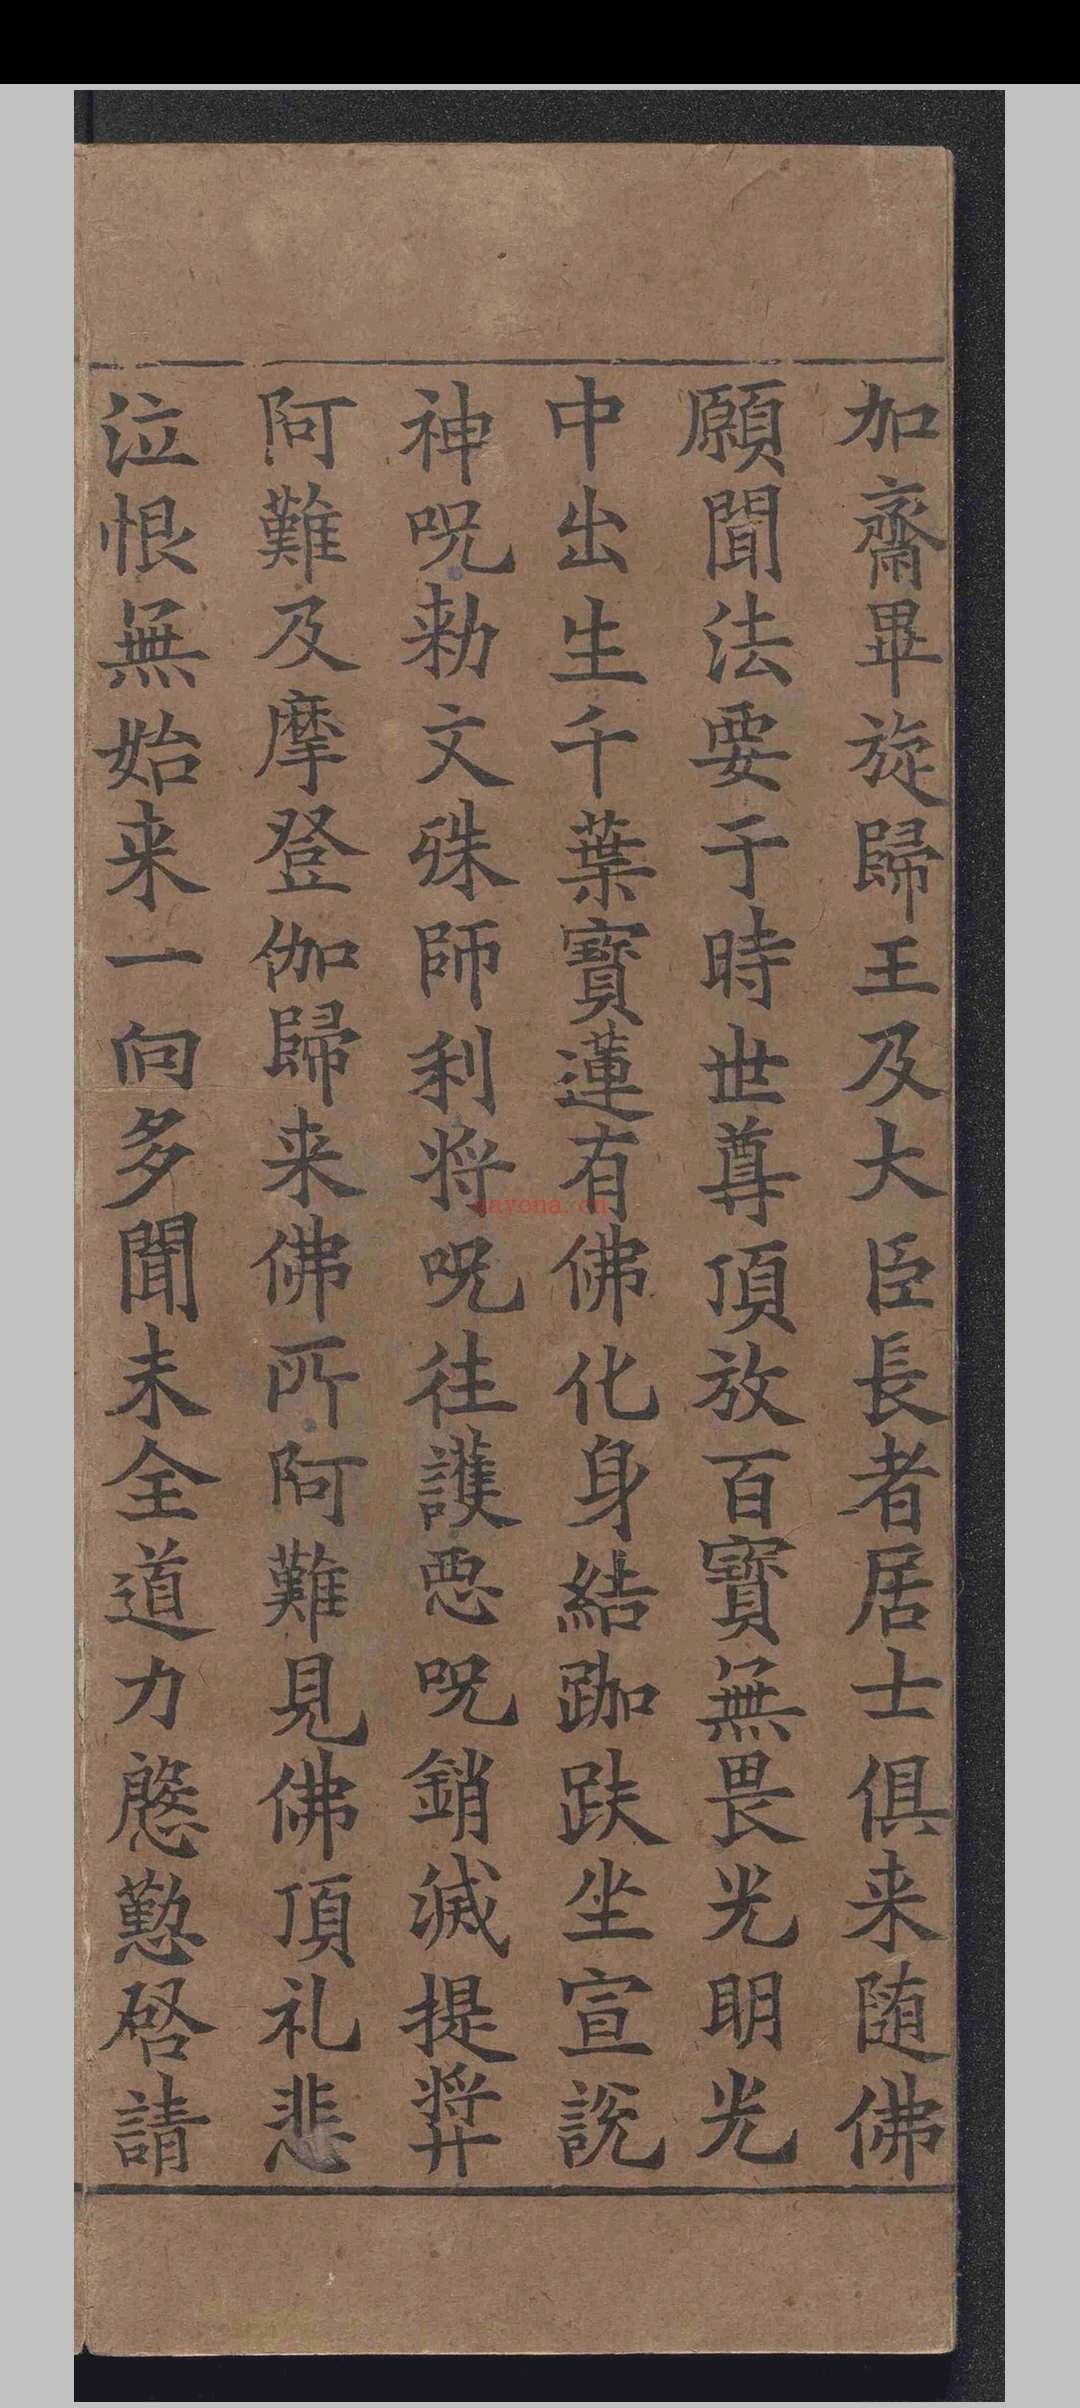 加齋畢旋歸王及大臣長者居士俱来随佛
願聞法要于時世尊頂放百寶無畏光明光
中出生千葉寶蓮有佛化身結跏趺坐宣說
神呪勑文殊師利将呪往護惡呪銷滅提奬
阿難及摩登伽歸来佛所阿難見佛頂礼悲
泣恨無始来一向多聞未全道力慇懃啓請
nayona.cn